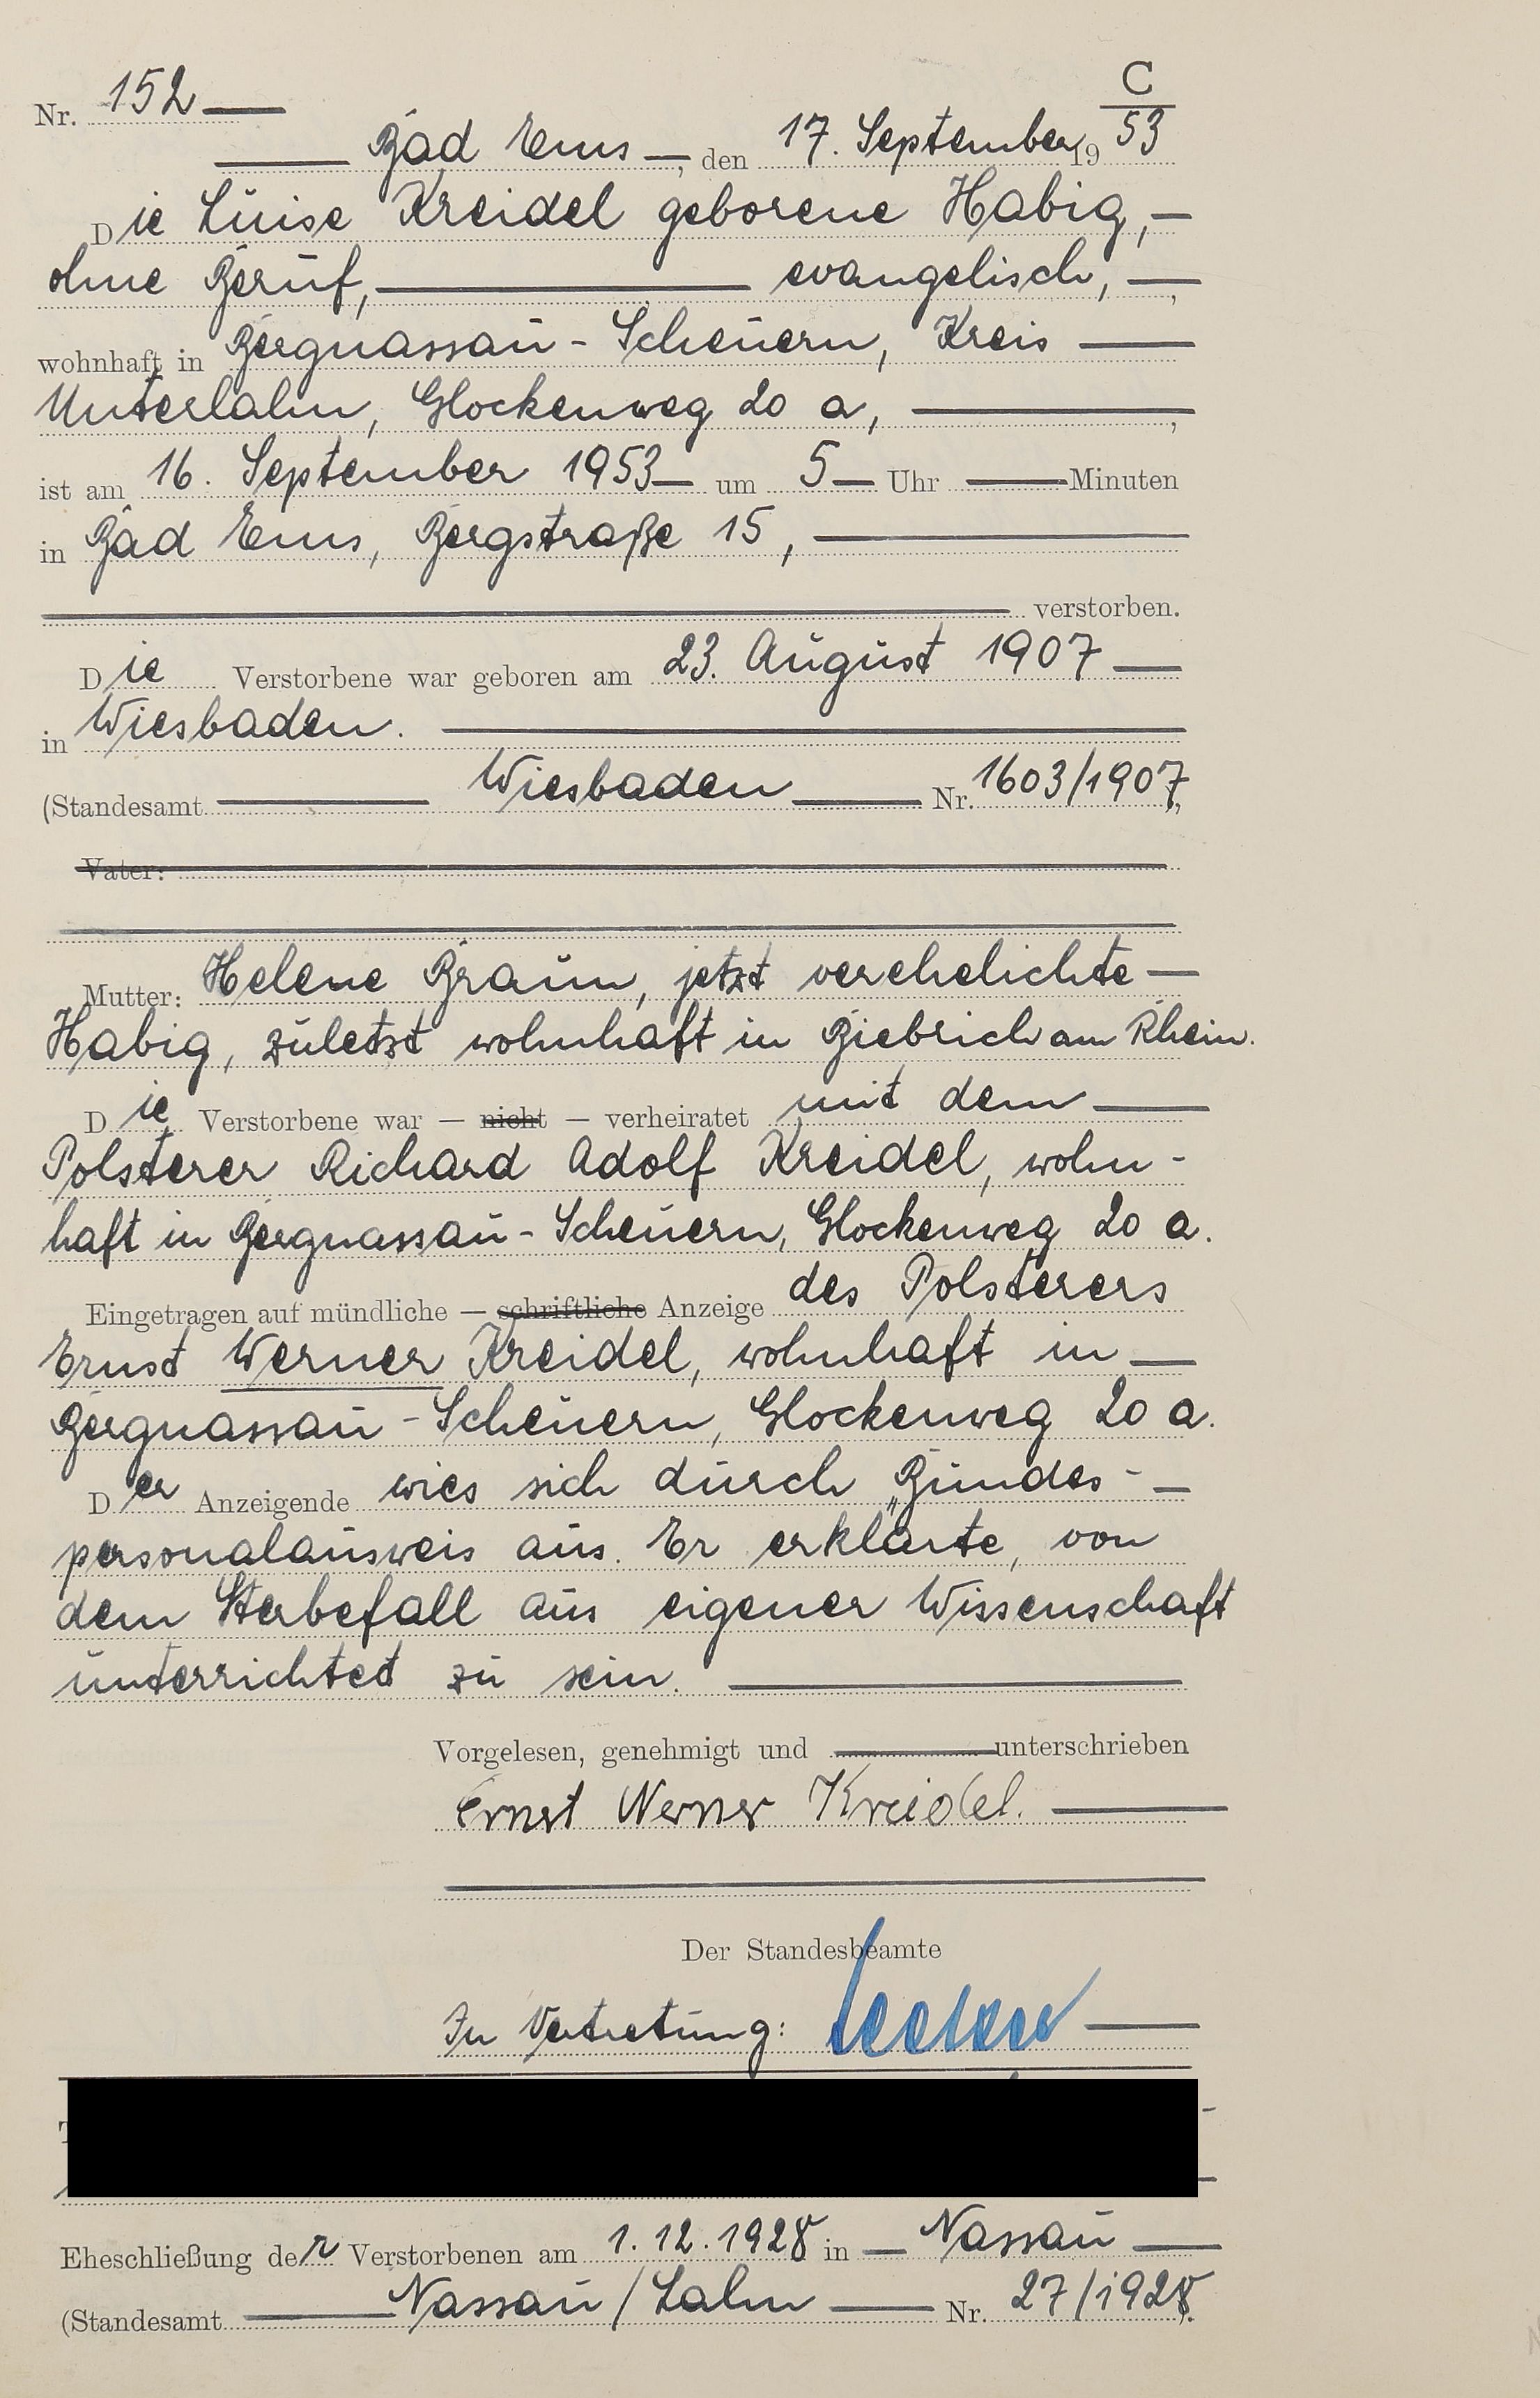 C
Nr. 152
Bad Ems, den 17. September 1953
Die Luise Kreidel geborene Habig,
ohne Beruf, evangelisch,
wohnhaft in Bergnassau-Scheuern, Kreis
Unterlahn, Glockenweg 20 a,
ist am 16. September 1953 um 5 Uhr Minuten
in Bad Ems, Bergstraße 15,
verstorben.
Die Verstorbene war geboren am 23. August 1907
in Wiesbaden.
(Standesamt Wiesbaden Nr. 1603/1907,
Vater:
Mutter: Helene Braun, jetzt verehelichte
Habig, zuletzt wohnhaft in Biebrich am Rhein.
Die Verstorbene war — nicht — verheiratet mit dem
Polsterer Richard Adolf Kreidel, wohn-
haft in Bergnassau-Scheuern, Glockenweg 20 a.
Eingetragen auf mündliche — schriftliche Anzeige des Polsterers
Ernst Werner Kreidel, wohnhaft in
Bergnassau-Scheuern, Glockenweg 20 a.
Der Anzeigende wies sich durch „Bundes-
personalausweis aus. Er erklärte, von
dem Sterbefall aus eigener Wissenschaft
unterrichtet zu sein.
Vorgelesen, genehmigt und unterschrieben
Ernst Werner Kreidel.
Der Standesbeamte
In Vertretung:
Eheschließung der Verstorbenen am 1.12.1928 in Nassau
(Standesamt Nassau/Lahn Nr. 27/1928.